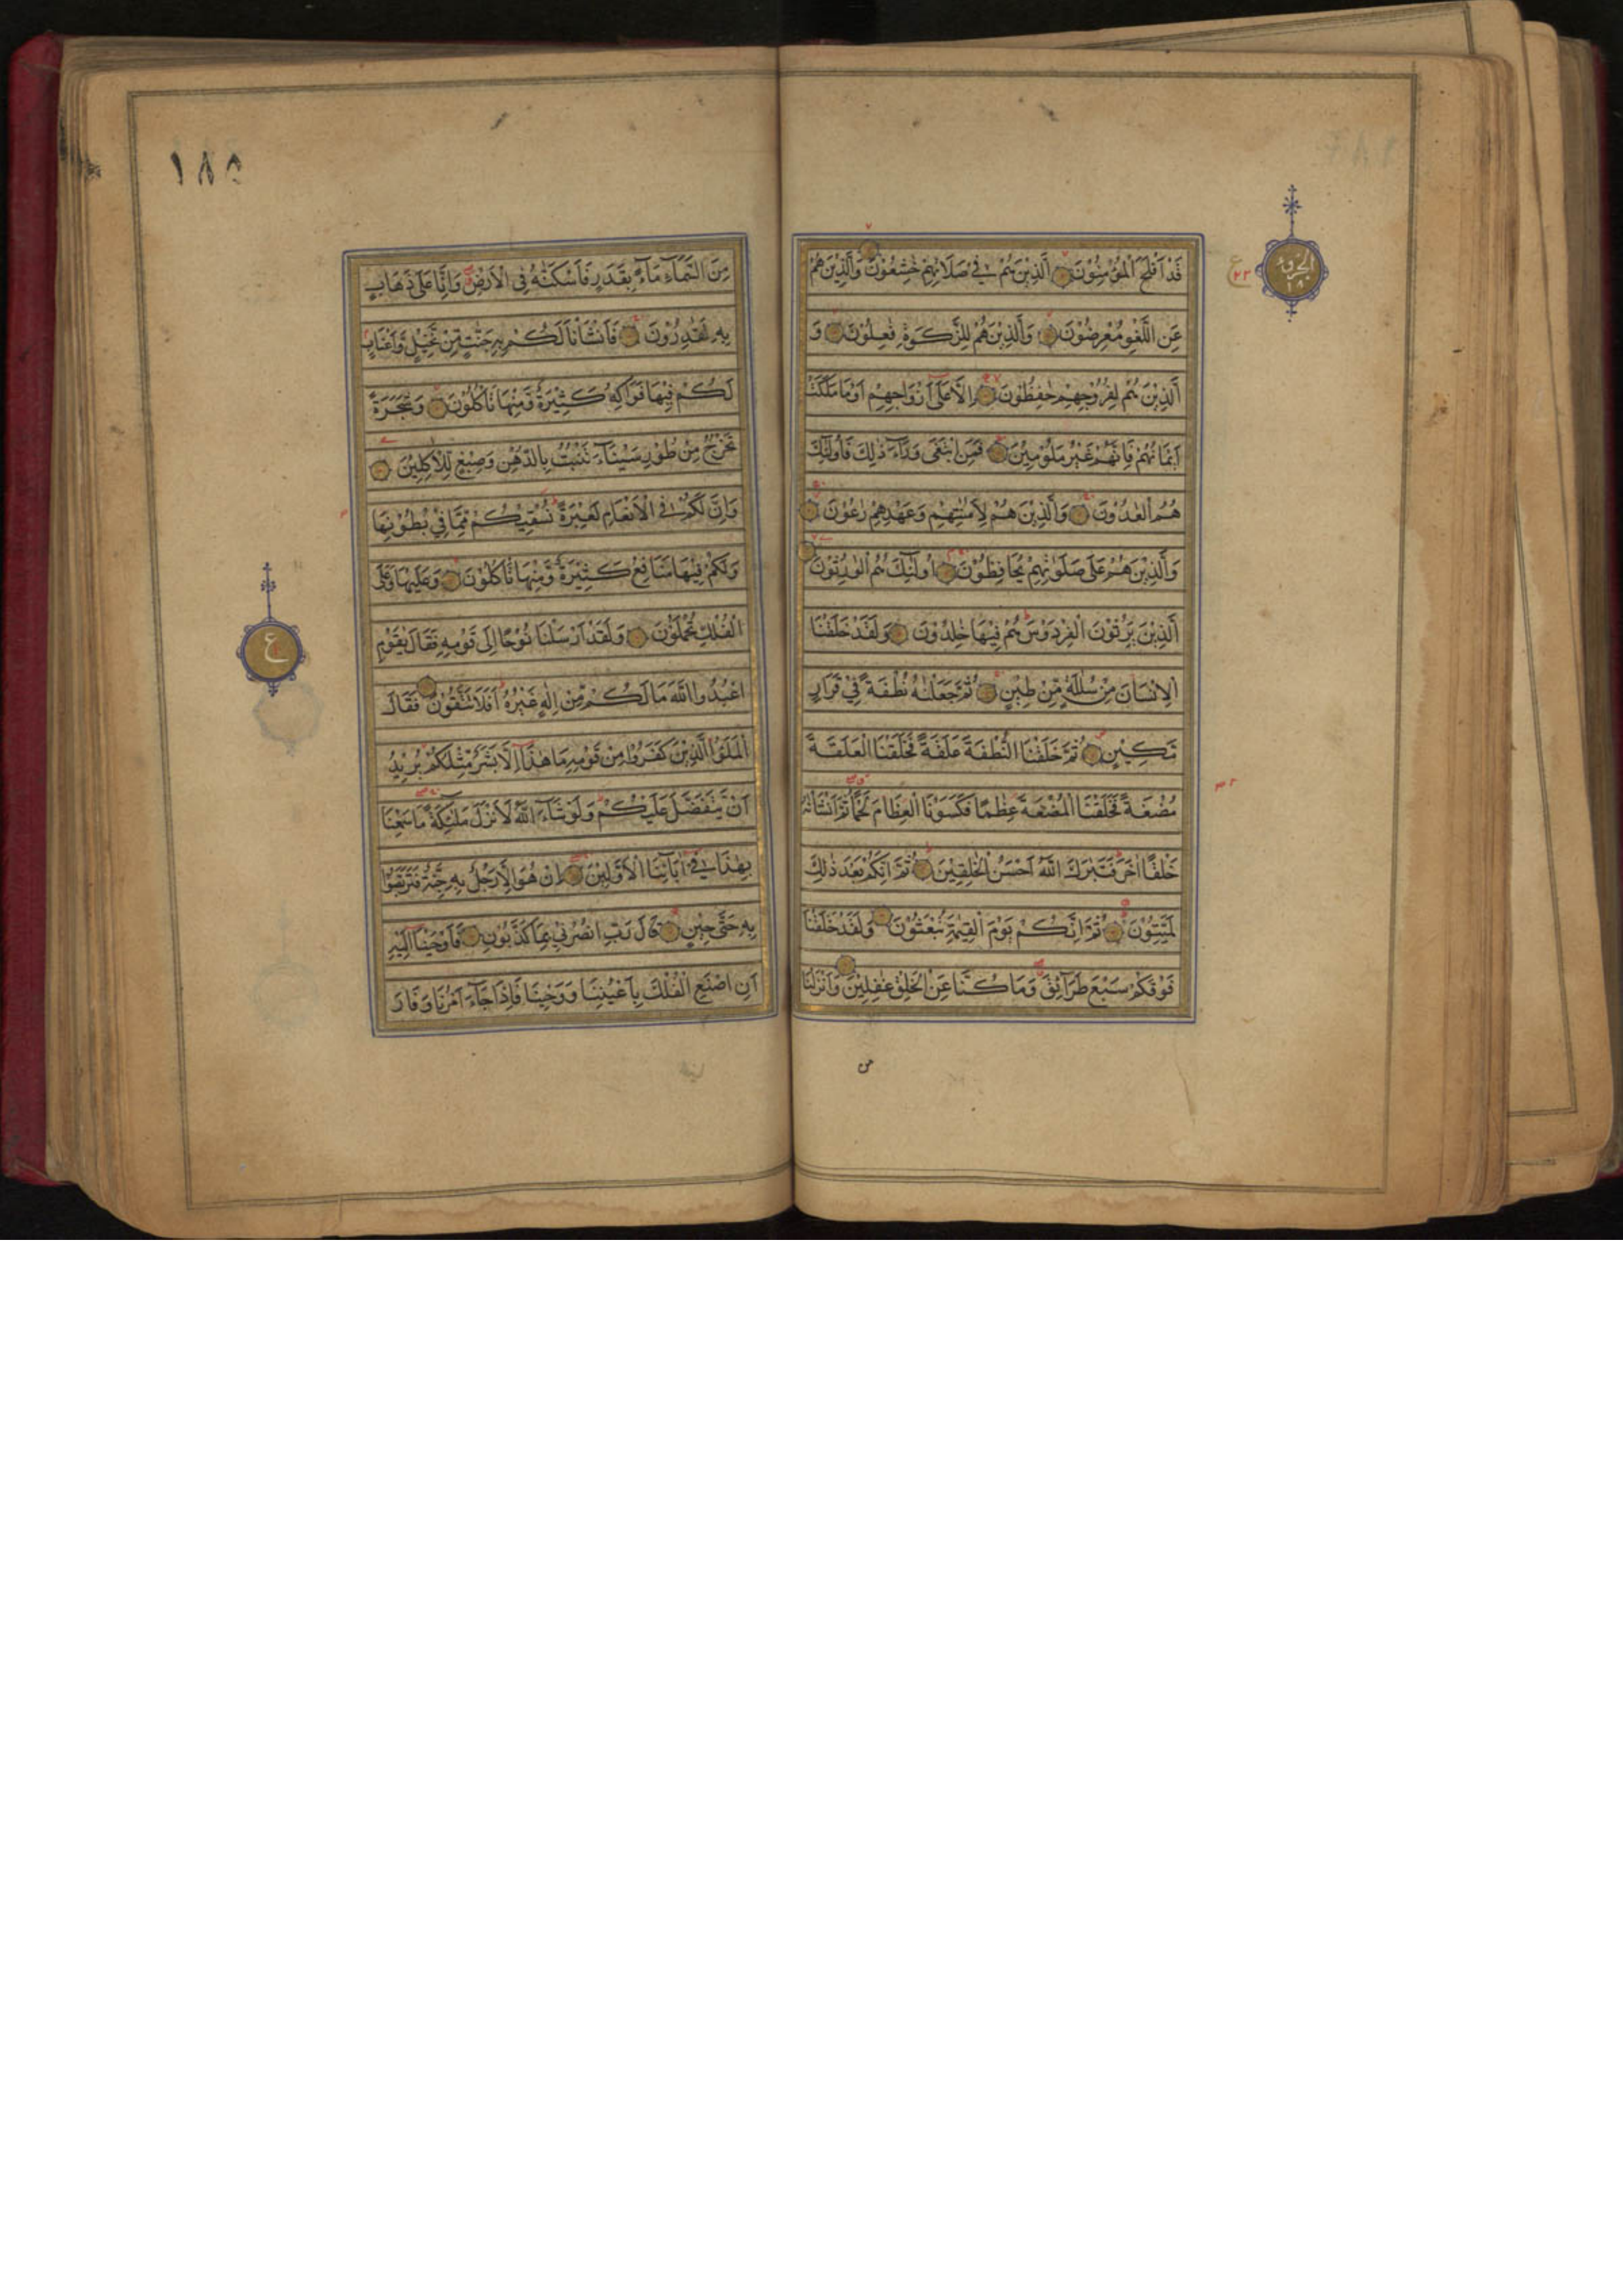 الجزؤ ١٨
ع
٢٣
قَدْ اَفْلَحَ الْمُؤْمِنُوْنَ الَّذِيْنَ هُمْ فِيْ صَلَاتِهِمْ خٰشِعُوْنَ وَالَّذِيْنَ هُمْ
عَنِ اللَّغْوِ مُعْرِضُوْنَ وَالَّذِيْنَ هُمْ لِلزَّكٰوةِ فٰعِلُوْنَ وَ
الَّذِيْنَ هُمْ لِفُرُوْجِهِمْ حٰفِظُوْنَ اِلَّا عَلٰٓى اَزْوَاجِهِمْ اَوْ مَا مَلَكَتْ
اَيْمَانُهُمْ فَاِنَّهُمْ غَيْرُ مَلُوْمِيْنَ فَمَنِ ابْتَغٰى وَرَآءَ ذٰلِكَ فَاُولٰٓئِكَ
هُمُ الْعٰدُوْنَ وَالَّذِيْنَ هُمْ لِاَمٰنٰتِهِمْ وَعَهْدِهِمْ رٰعُوْنَ
وَالَّذِيْنَ هُمْ عَلٰى صَلَوٰتِهِمْ يُحَافِظُوْنَ اُولٰٓئِكَ هُمُ الْوٰرِثُوْنَ
الَّذِيْنَ يَرِثُوْنَ الْفِرْدَوْسَ هُمْ فِيْهَا خٰلِدُوْنَ وَلَقَدْ خَلَقْنَا
الْاِنْسَانَ مِنْ سُلٰلَةٍ مِّنْ طِيْنٍ ثُمَّ جَعَلْنٰهُ نُطْفَةً فِيْ قَرَارٍ
مَّكِيْنٍ ثُمَّ خَلَقْنَا النُّطْفَةَ عَلَقَةً فَخَلَقْنَا الْعَلَقَةَ
مُضْغَةً فَخَلَقْنَا الْمُضْغَةَ عِظٰمًا فَكَسَوْنَا الْعِظَامَ لَحْمًا ثُمَّ اَنْشَاْنٰهُ
خَلْقًا اٰخَرَ فَتَبٰرَكَ اللّٰهُ اَحْسَنُ الْخٰلِقِيْنَ ثُمَّ اِنَّكُمْ بَعْدَ ذٰلِكَ
لَمَيِّتُوْنَ ثُمَّ اِنَّكُمْ يَوْمَ الْقِيٰمَةِ تُبْعَثُوْنَ وَلَقَدْ خَلَقْنَا
فَوْقَكُمْ سَبْعَ طَرَآئِقَ وَمَا كُنَّا عَنِ الْخَلْقِ غٰفِلِيْنَ وَاَنْزَلْنَا
من
١٨٥
مِنَ السَّمَآءِ مَآءً بِقَدَرٍ فَاَسْكَنّٰهُ فِى الْاَرْضِ وَاِنَّا عَلٰى ذَهَابٍ
بِهٖ لَقٰدِرُوْنَ فَاَنْشَاْنَا لَكُمْ بِهٖ جَنّٰتٍ مِّنْ نَّخِيْلٍ وَّاَعْنَابٍ
لَكُمْ فِيْهَا فَوَاكِهُ كَثِيْرَةٌ وَّمِنْهَا تَاْكُلُوْنَ وَشَجَرَةً
تَخْرُجُ مِنْ طُوْرِ سَيْنَآءَ تَنْبُتُ بِالدُّهْنِ وَصِبْغٍ لِّلْاٰكِلِيْنَ
وَاِنَّ لَكُمْ فِى الْاَنْعَامِ لَعِبْرَةً نُسْقِيْكُمْ مِّمَّا فِيْ بُطُوْنِهَا
وَلَكُمْ فِيْهَا مَنَافِعُ كَثِيْرَةٌ وَّمِنْهَا تَاْكُلُوْنَ وَعَلَيْهَا وَعَلَى
الْفُلْكِ تُحْمَلُوْنَ وَلَقَدْ اَرْسَلْنَا نُوْحًا اِلٰى قَوْمِهٖ فَقَالَ يٰقَوْمِ
اعْبُدُوا اللّٰهَ مَا لَكُمْ مِّنْ اِلٰهٍ غَيْرُهٗ اَفَلَا تَتَّقُوْنَ فَقَالَ
الْمَلَؤُا الَّذِيْنَ كَفَرُوْا مِنْ قَوْمِهٖ مَا هٰذَآ اِلَّا بَشَرٌ مِّثْلُكُمْ يُرِيْدُ
اَنْ يَّتَفَضَّلَ عَلَيْكُمْ وَلَوْ شَآءَ اللّٰهُ لَاَنْزَلَ مَلٰٓئِكَةً مَّا سَمِعْنَا
بِهٰذَا فِيْٓ اٰبَآئِنَا الْاَوَّلِيْنَ اِنْ هُوَ اِلَّا رَجُلٌ بِهٖ جِنَّةٌ فَتَرَبَّصُوْا
بِهٖ حَتّٰى حِيْنٍ قَالَ رَبِّ انْصُرْنِيْ بِمَا كَذَّبُوْنِ فَاَوْحَيْنَآ اِلَيْهِ
اَنِ اصْنَعِ الْفُلْكَ بِاَعْيُنِنَا وَوَحْيِنَا فَاِذَا جَآءَ اَمْرُنَا وَفَارَ
ع